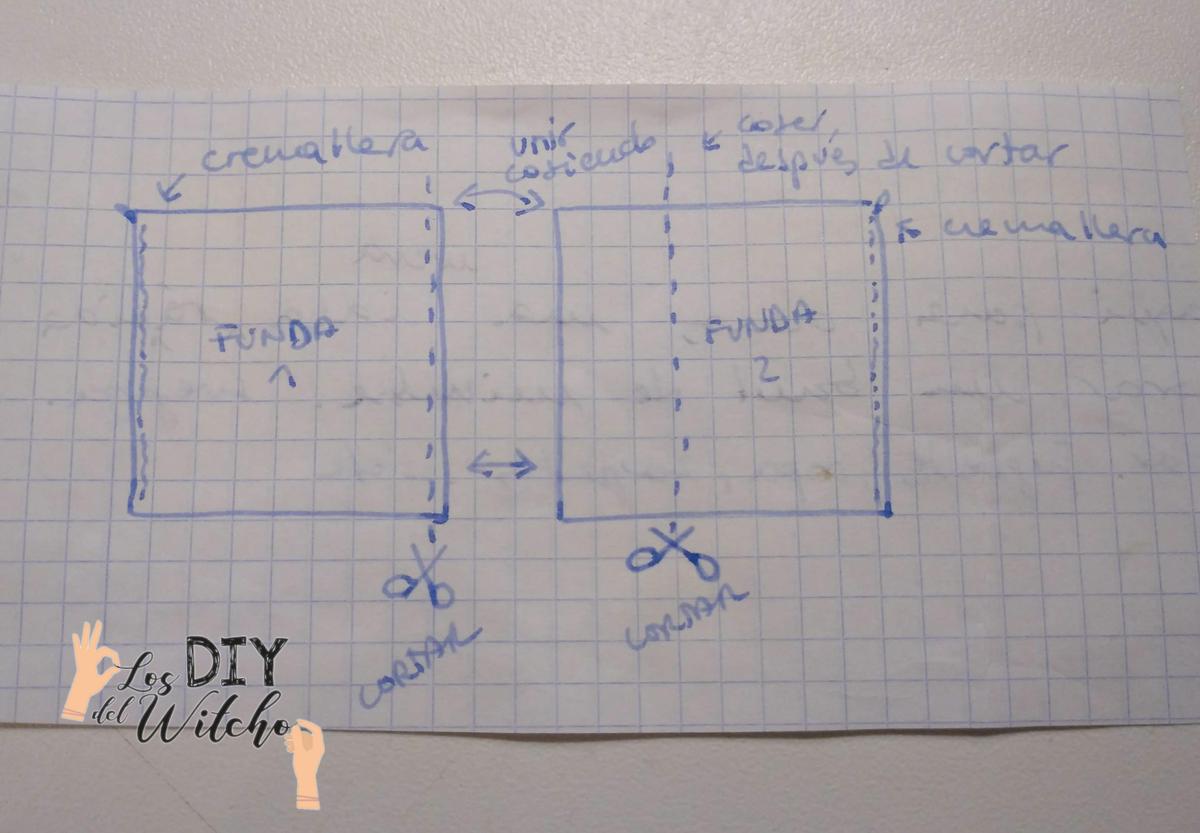 cremallera
unir
cosiendo
coser,
después de cortar
cremallera
FUNDA
1
FUNDA
2
CORTAR
CORTAR
Los DIY
del Witcho